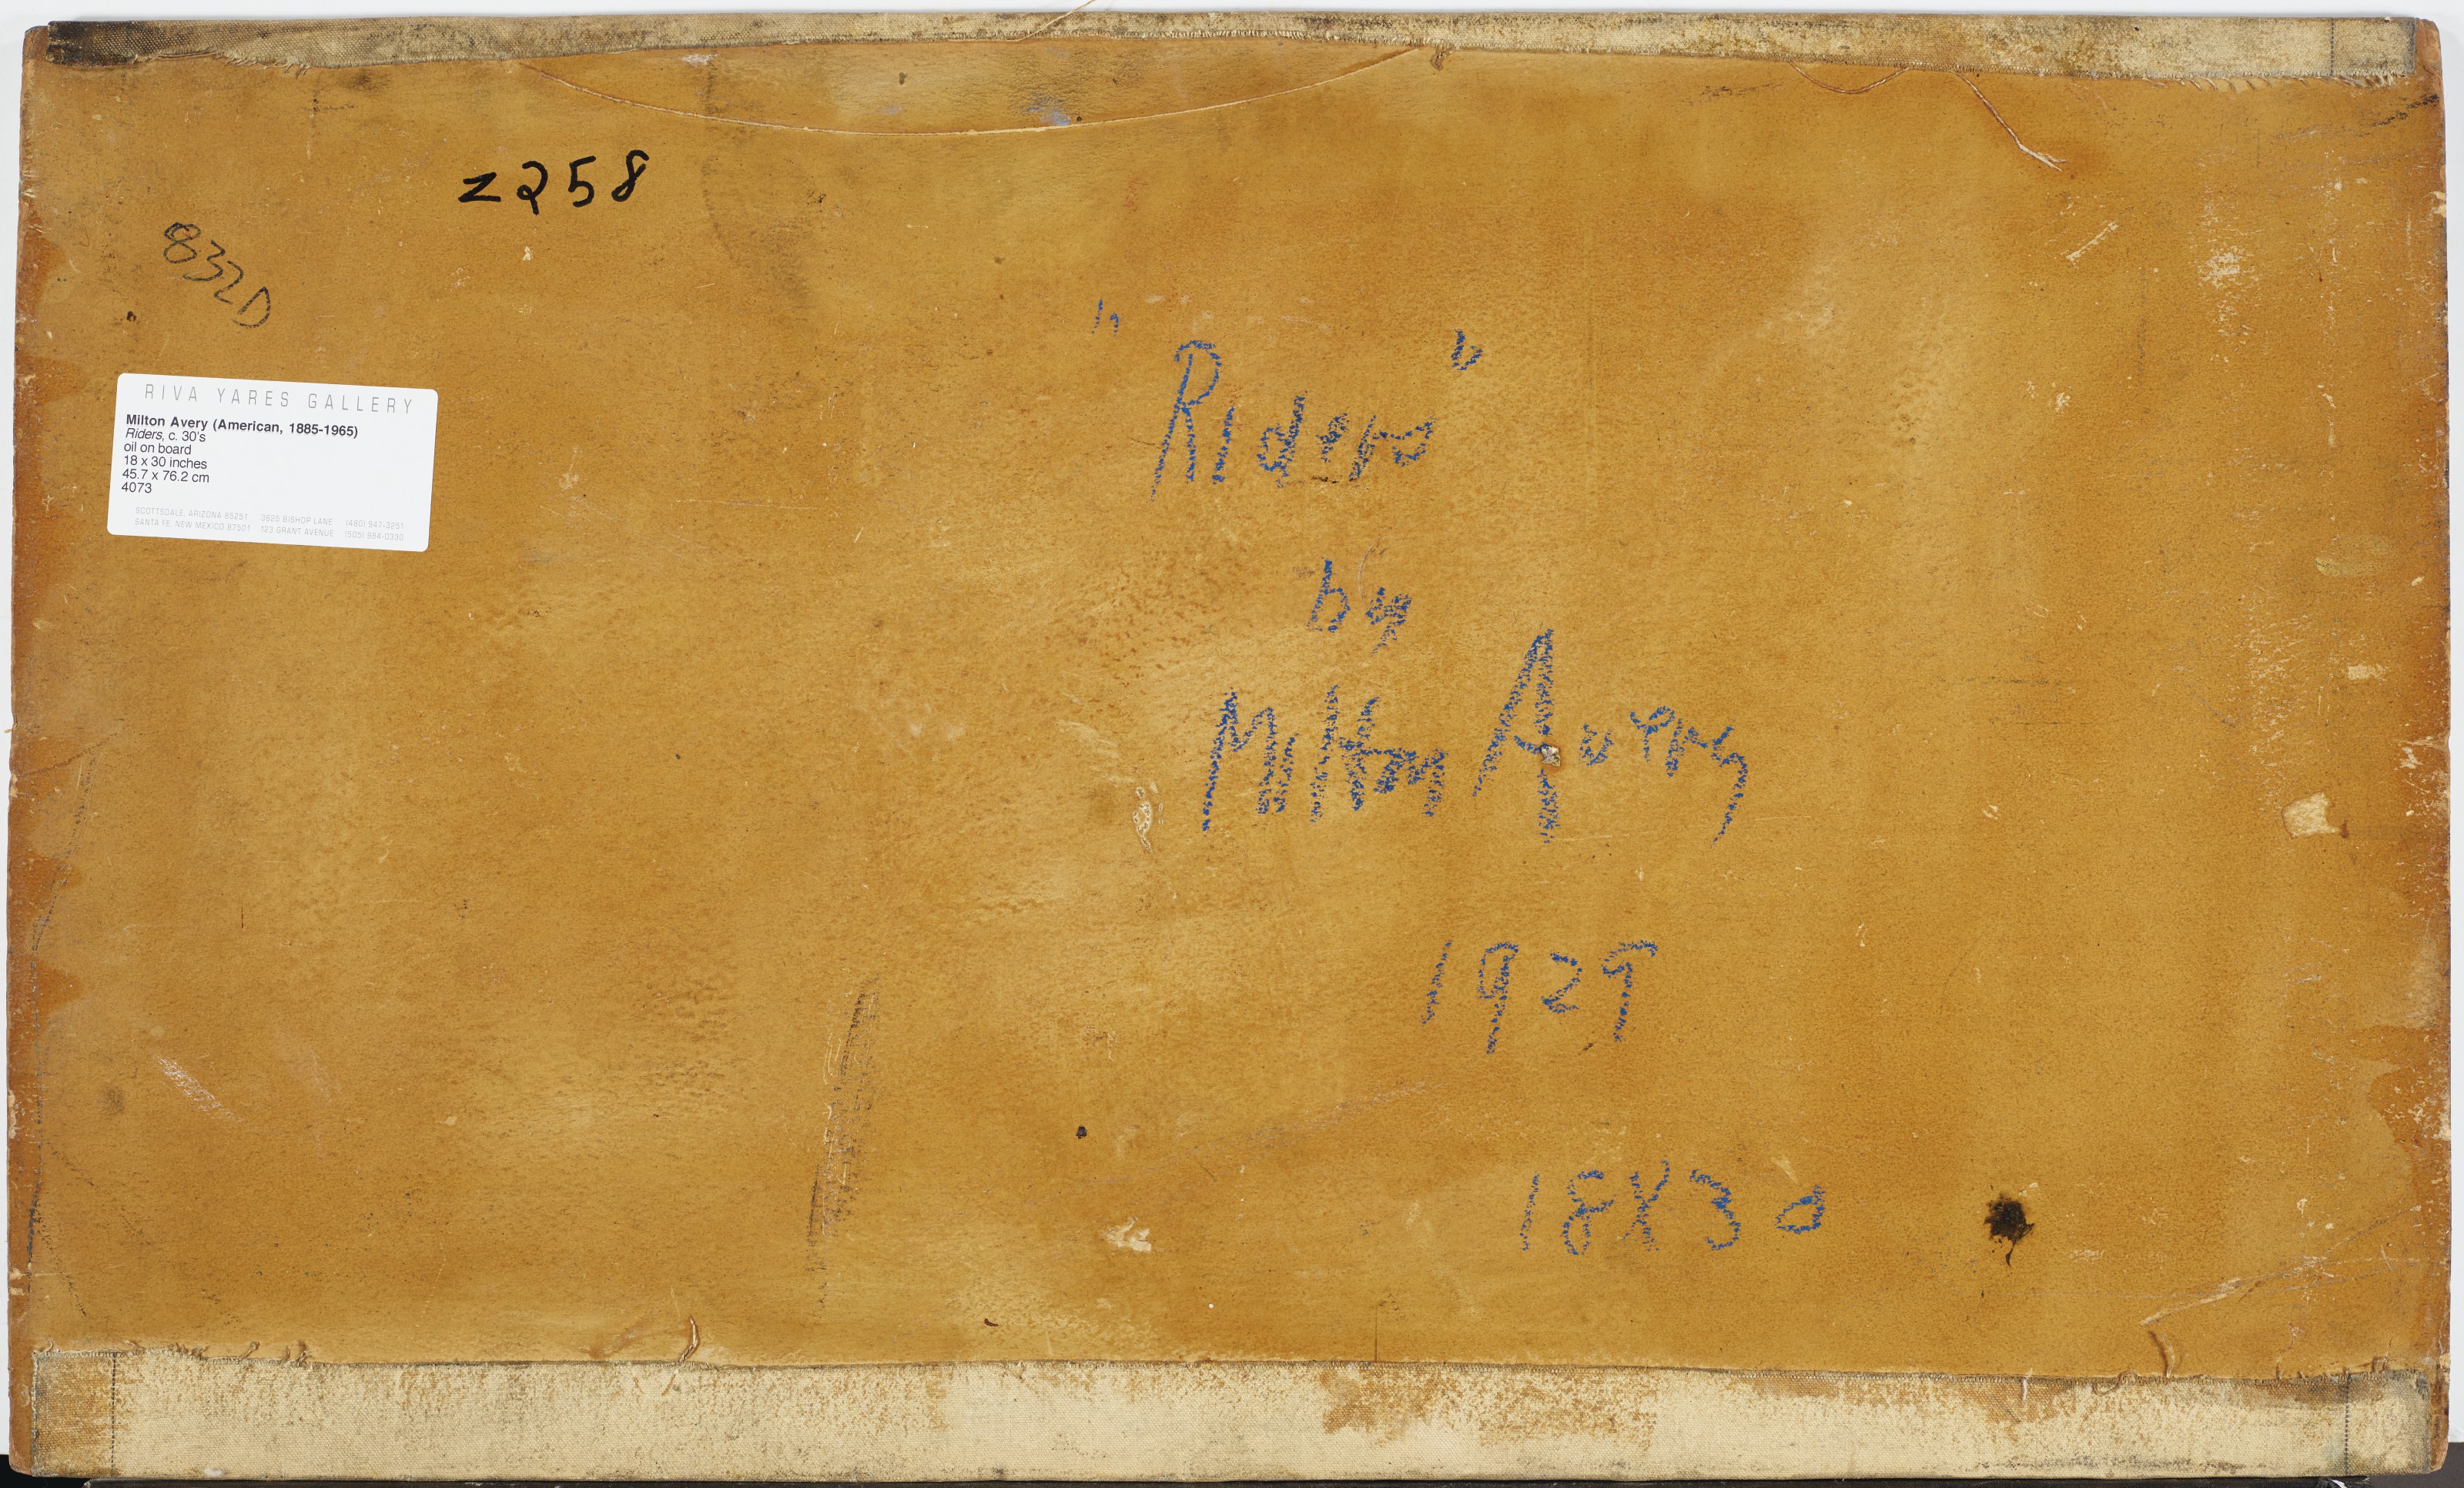 z258
832D
RIVA YARES GALLERY
Milton Avery (American, 1885-1965)
Riders, c. 30's
oil on board
18 x 30 inches
45.7 x 76.2 cm
4073
SCOTTSDALE, ARIZONA 85251 3625 BISHOP LANE (480) 947-3251
SANTA FE, NEW MEXICO 87501 123 GRANT AVENUE (505) 984-0330
"Riders"
by
Milton Avery
1929
18X30